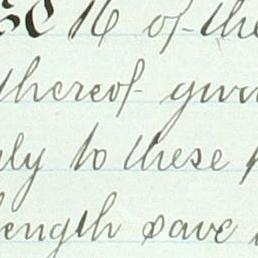 16 of the
thereof given
ly to these
length save